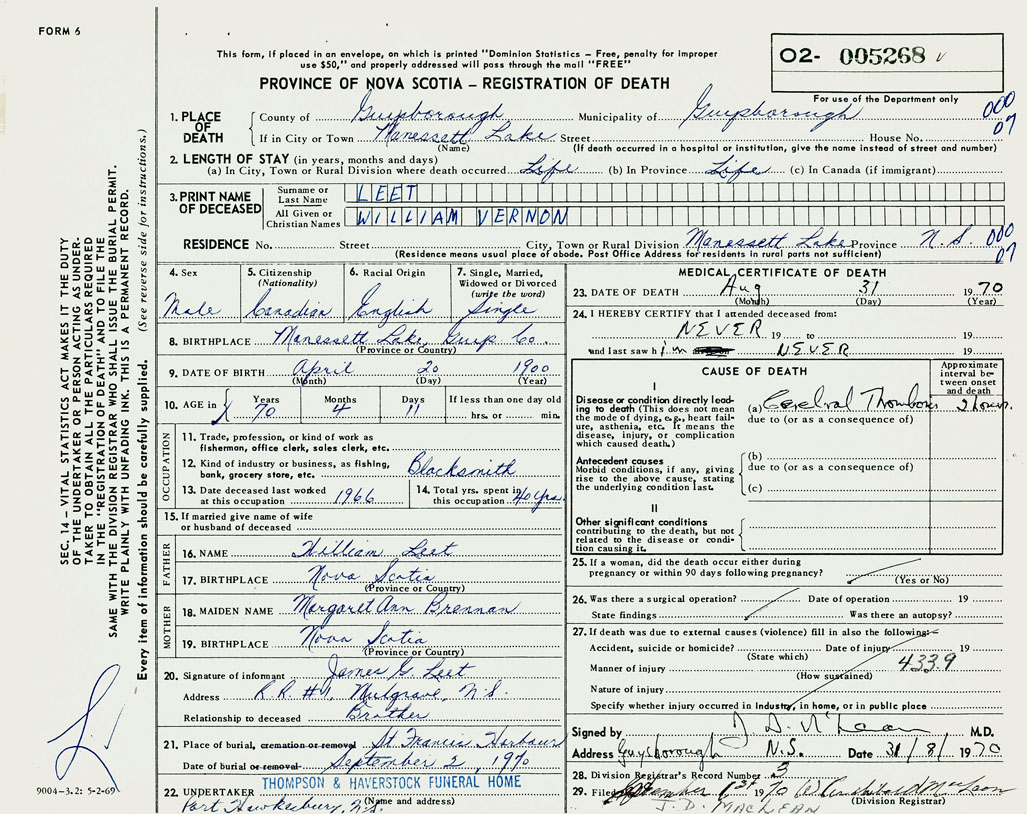 FORM 6
This form, if placed in an envelope, on which is printed "Dominion Statistics – Free, penalty for improper
use $50," and properly addressed will pass through the mail "FREE"
PROVINCE OF NOVA SCOTIA – REGISTRATION OF DEATH
O2- 005268
For use of the Department only
000
07
1. PLACE OF DEATH
County of Guysborough Municipality of Guysborough
If in City or Town Manessett Lake Street House No.
(Name) (If death occurred in a hospital or institution, give the name instead of street and number)
2. LENGTH OF STAY (in years, months and days)
(a) In City, Town or Rural Division where death occurred Life (b) In Province Life (c) In Canada (if immigrant)
3. PRINT NAME OF DECEASED
Surname or Last Name LEET
All Given or Christian Names WILLIAM VERNON
RESIDENCE No. Street City, Town or Rural Division Manessett Lake Province N.S. 000
07
(Residence means usual place of abode. Post Office Address for residents in rural parts not sufficient)
4. Sex Male
5. Citizenship (Nationality) Canadian
6. Racial Origin English
7. Single, Married, Widowed or Divorced (write the word) Single
8. BIRTHPLACE Manessett Lake, Guys Co.
(Province or Country)
9. DATE OF BIRTH April 20 1900
(Month) (Day) (Year)
10. AGE in Years 70 Months 4 Days 11 If less than one day old hrs. or min.
OCCUPATION
11. Trade, profession, or kind of work as
fisherman, office clerk, sales clerk, etc.
12. Kind of industry or business, as fishing,
bank, grocery store, etc. Blacksmith
13. Date deceased last worked at this occupation 1966
14. Total yrs. spent in this occupation 40 yrs.
15. If married give name of wife
or husband of deceased
FATHER
16. NAME William Leet
17. BIRTHPLACE Nova Scotia
(Province or Country)
MOTHER
18. MAIDEN NAME Margaret Ann Brennan
19. BIRTHPLACE Nova Scotia
(Province or Country)
20. Signature of informant James G. Leet
Address R.R. #1, Mulgrave, N.S.
Relationship to deceased Brother
21. Place of burial, cremation or removal St Francis Harbour
Date of burial or removal September 2, 1970
22. UNDERTAKER THOMPSON & HAVERSTOCK FUNERAL HOME
(Name and address)
Port Hawkesbury, N.S.
MEDICAL CERTIFICATE OF DEATH
23. DATE OF DEATH Aug 31 1970
(Month) (Day) (Year)
24. I HEREBY CERTIFY that I attended deceased from:
NEVER 19 to 19
and last saw him NEVER 19
CAUSE OF DEATH
Approximate interval between onset and death
I
Disease or condition directly leading to death (This does not
mean the mode of dying, e.g., heart failure,
asthenia, etc. It means the
disease, injury, or complication
which caused death.)
(a) Cerebral Thrombosis 2 hours.
due to (or as a consequence of)
Antecedent causes
Morbid conditions, if any, giving
rise to the above cause, stating
the underlying condition last.
(b)
due to (or as a consequence of)
(c)
II
Other significant conditions
contributing to the death, but not
related to the disease or condition
causing it.
25. If a woman, did the death occur either during
pregnancy or within 90 days following pregnancy?
(Yes or No)
26. Was there a surgical operation? Date of operation 19
State findings Was there an autopsy?
27. If death was due to external causes (violence) fill in also the following:
Accident, suicide or homicide? Date of injury 19
(State which)
4339
Manner of injury
(How sustained)
Nature of injury
Specify whether injury occurred in industry, in home, or in public place
Signed by J. D. McLean M.D.
Address Guysborough N.S. Date 31/8/1970
28. Division Registrar's Record Number 3
29. Filed September 1st 1970
(Division Registrar)
J. D. MACLEAN
SEC. 14 – VITAL STATISTICS ACT MAKES IT THE DUTY
OF THE UNDERTAKER OR PERSON ACTING AS UNDER-
TAKER TO OBTAIN ALL THE PARTICULARS REQUIRED
IN THE "REGISTRATION OF DEATH" AND TO FILE THE
SAME WITH THE DIVISION REGISTRAR WHO SHALL ISSUE THE BURIAL PERMIT.
WRITE PLAINLY WITH UNFADING INK. THIS IS A PERMANENT RECORD.
Every item of information should be carefully supplied. (See reverse side for instructions.)
9004-3.2: 5-2-69